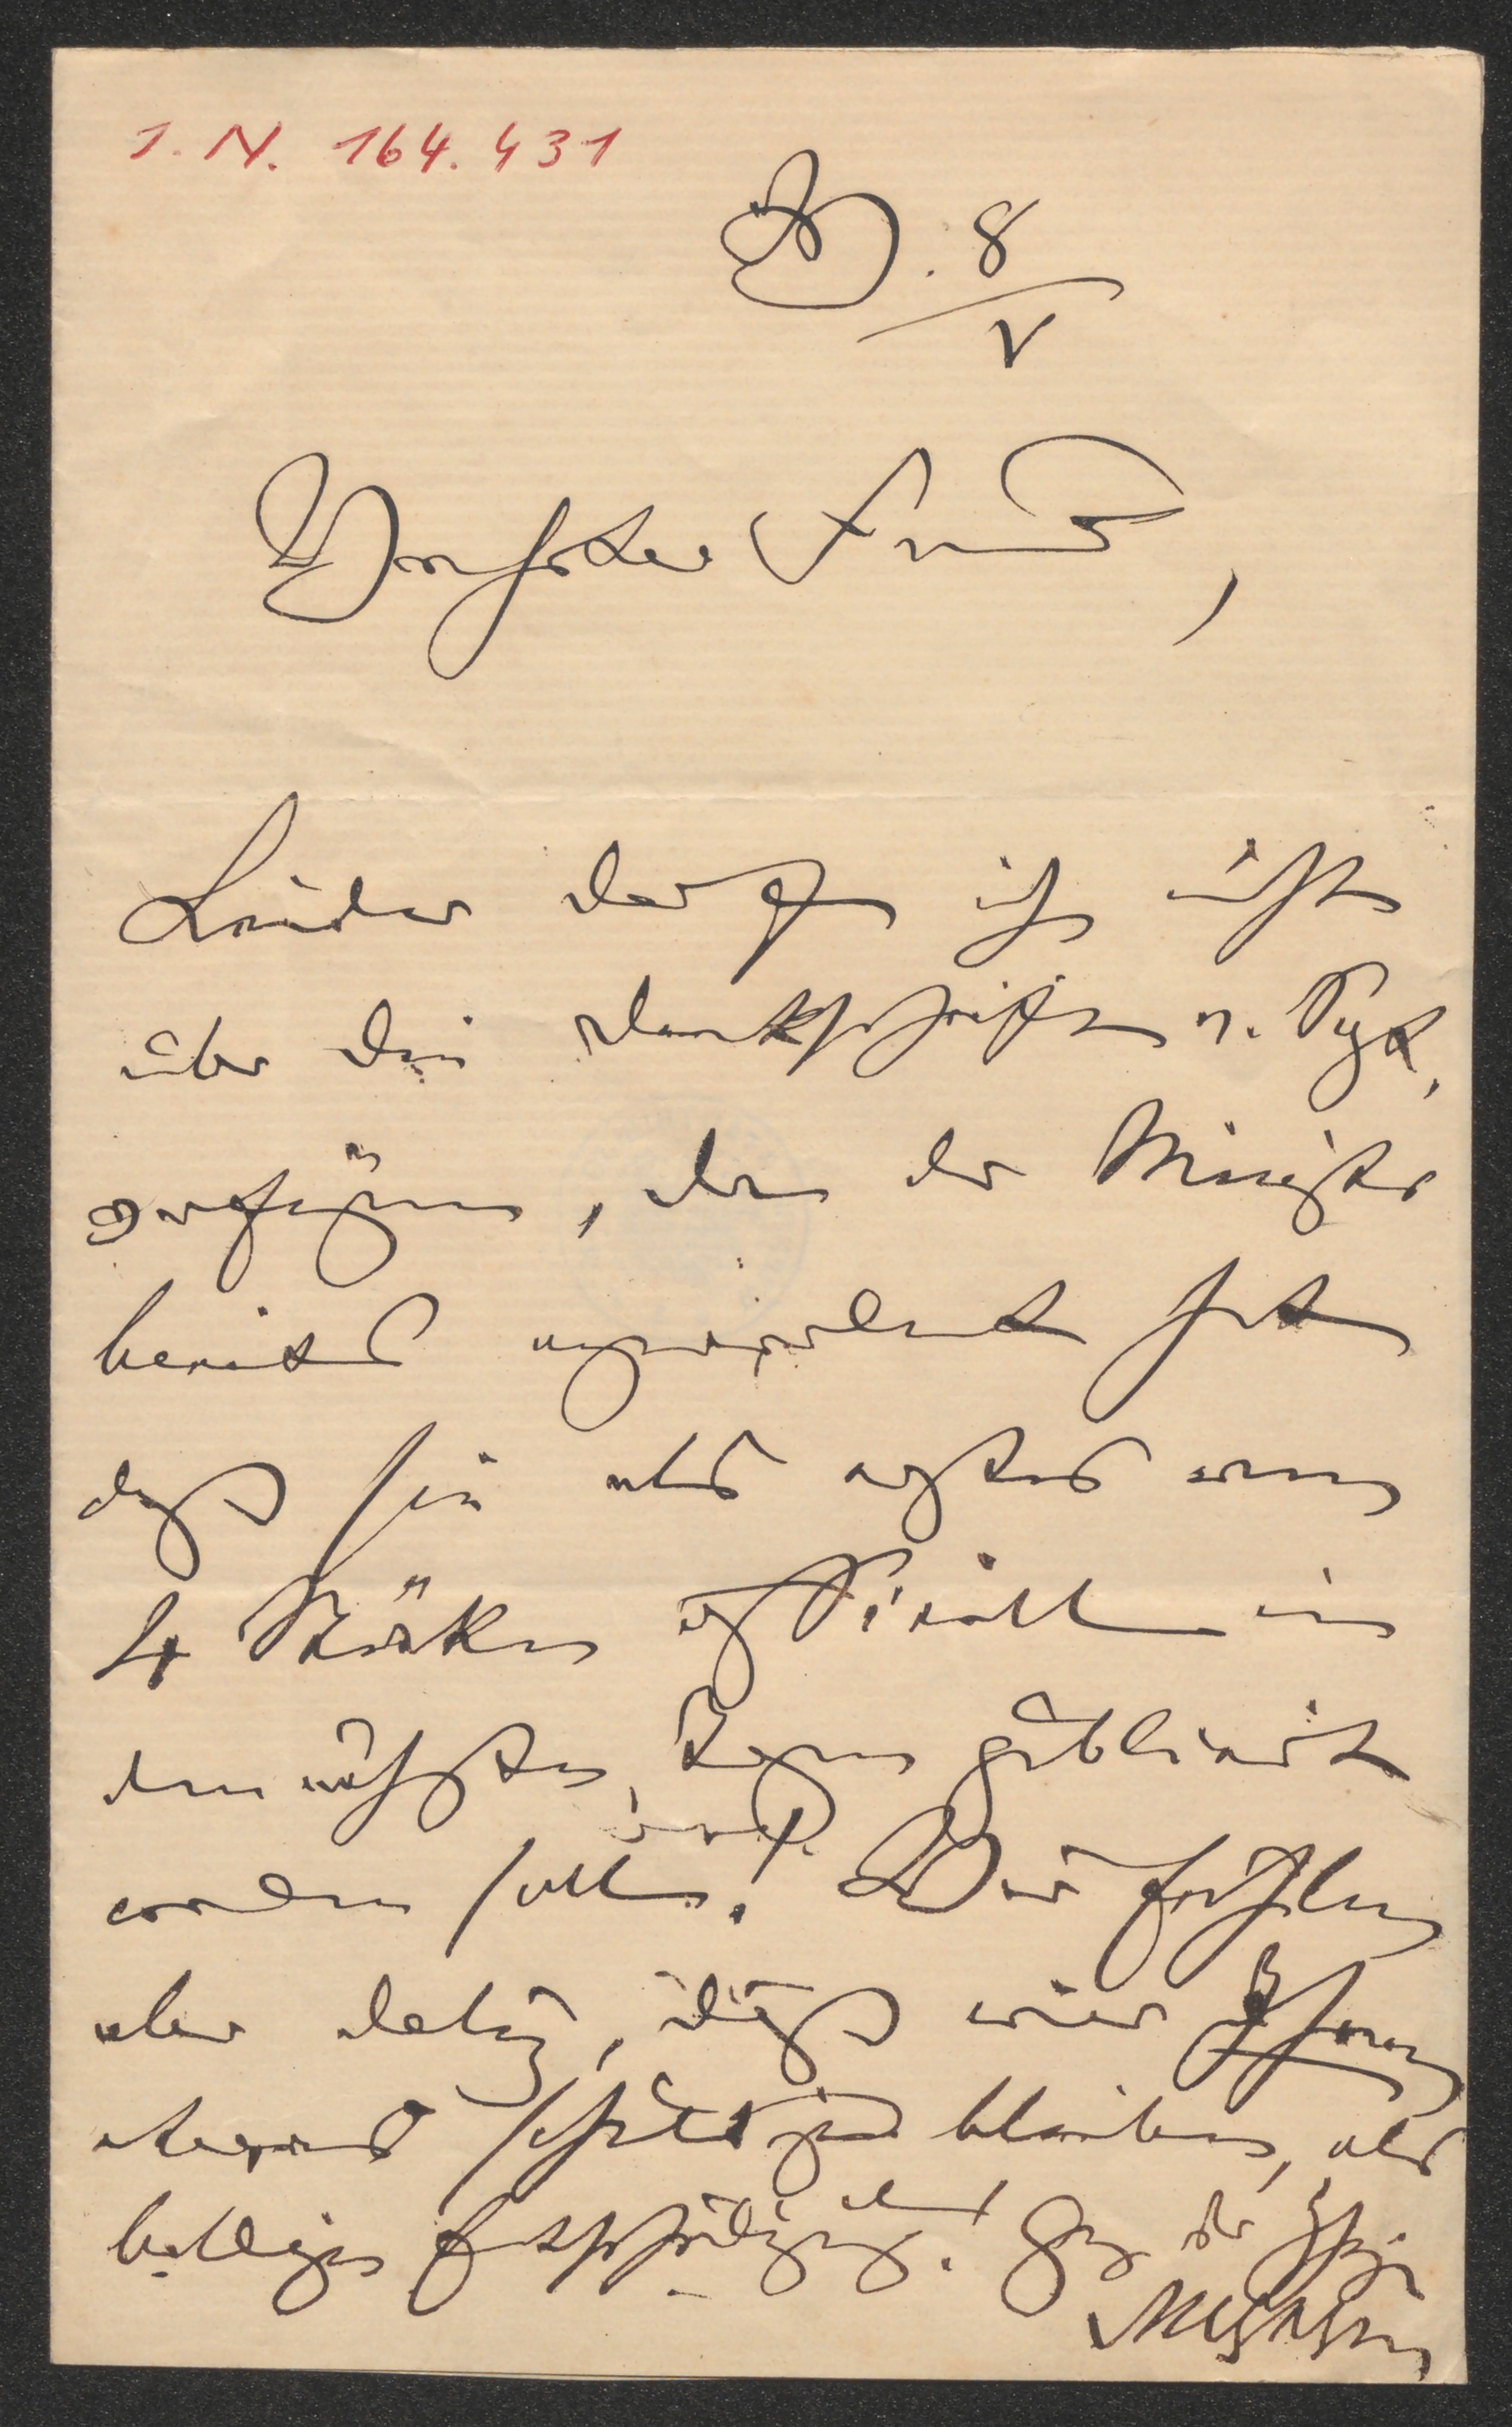 I. N. 164.431
B. 8/V
Verehrter Freund,
Leider darf ich nicht
über die Denkschrift v. Pest,
verfügen, da der Minister
bereits angeordnet hat
daß sie als erstes von
4 Stücken offiziell in
den nächsten Tagen publiziert
werden soll! Wir
aber dabei, daß wir Ihnen
etwas schuldig bleiben, als
baldigen Entschädigung. Ganz der Ihrige